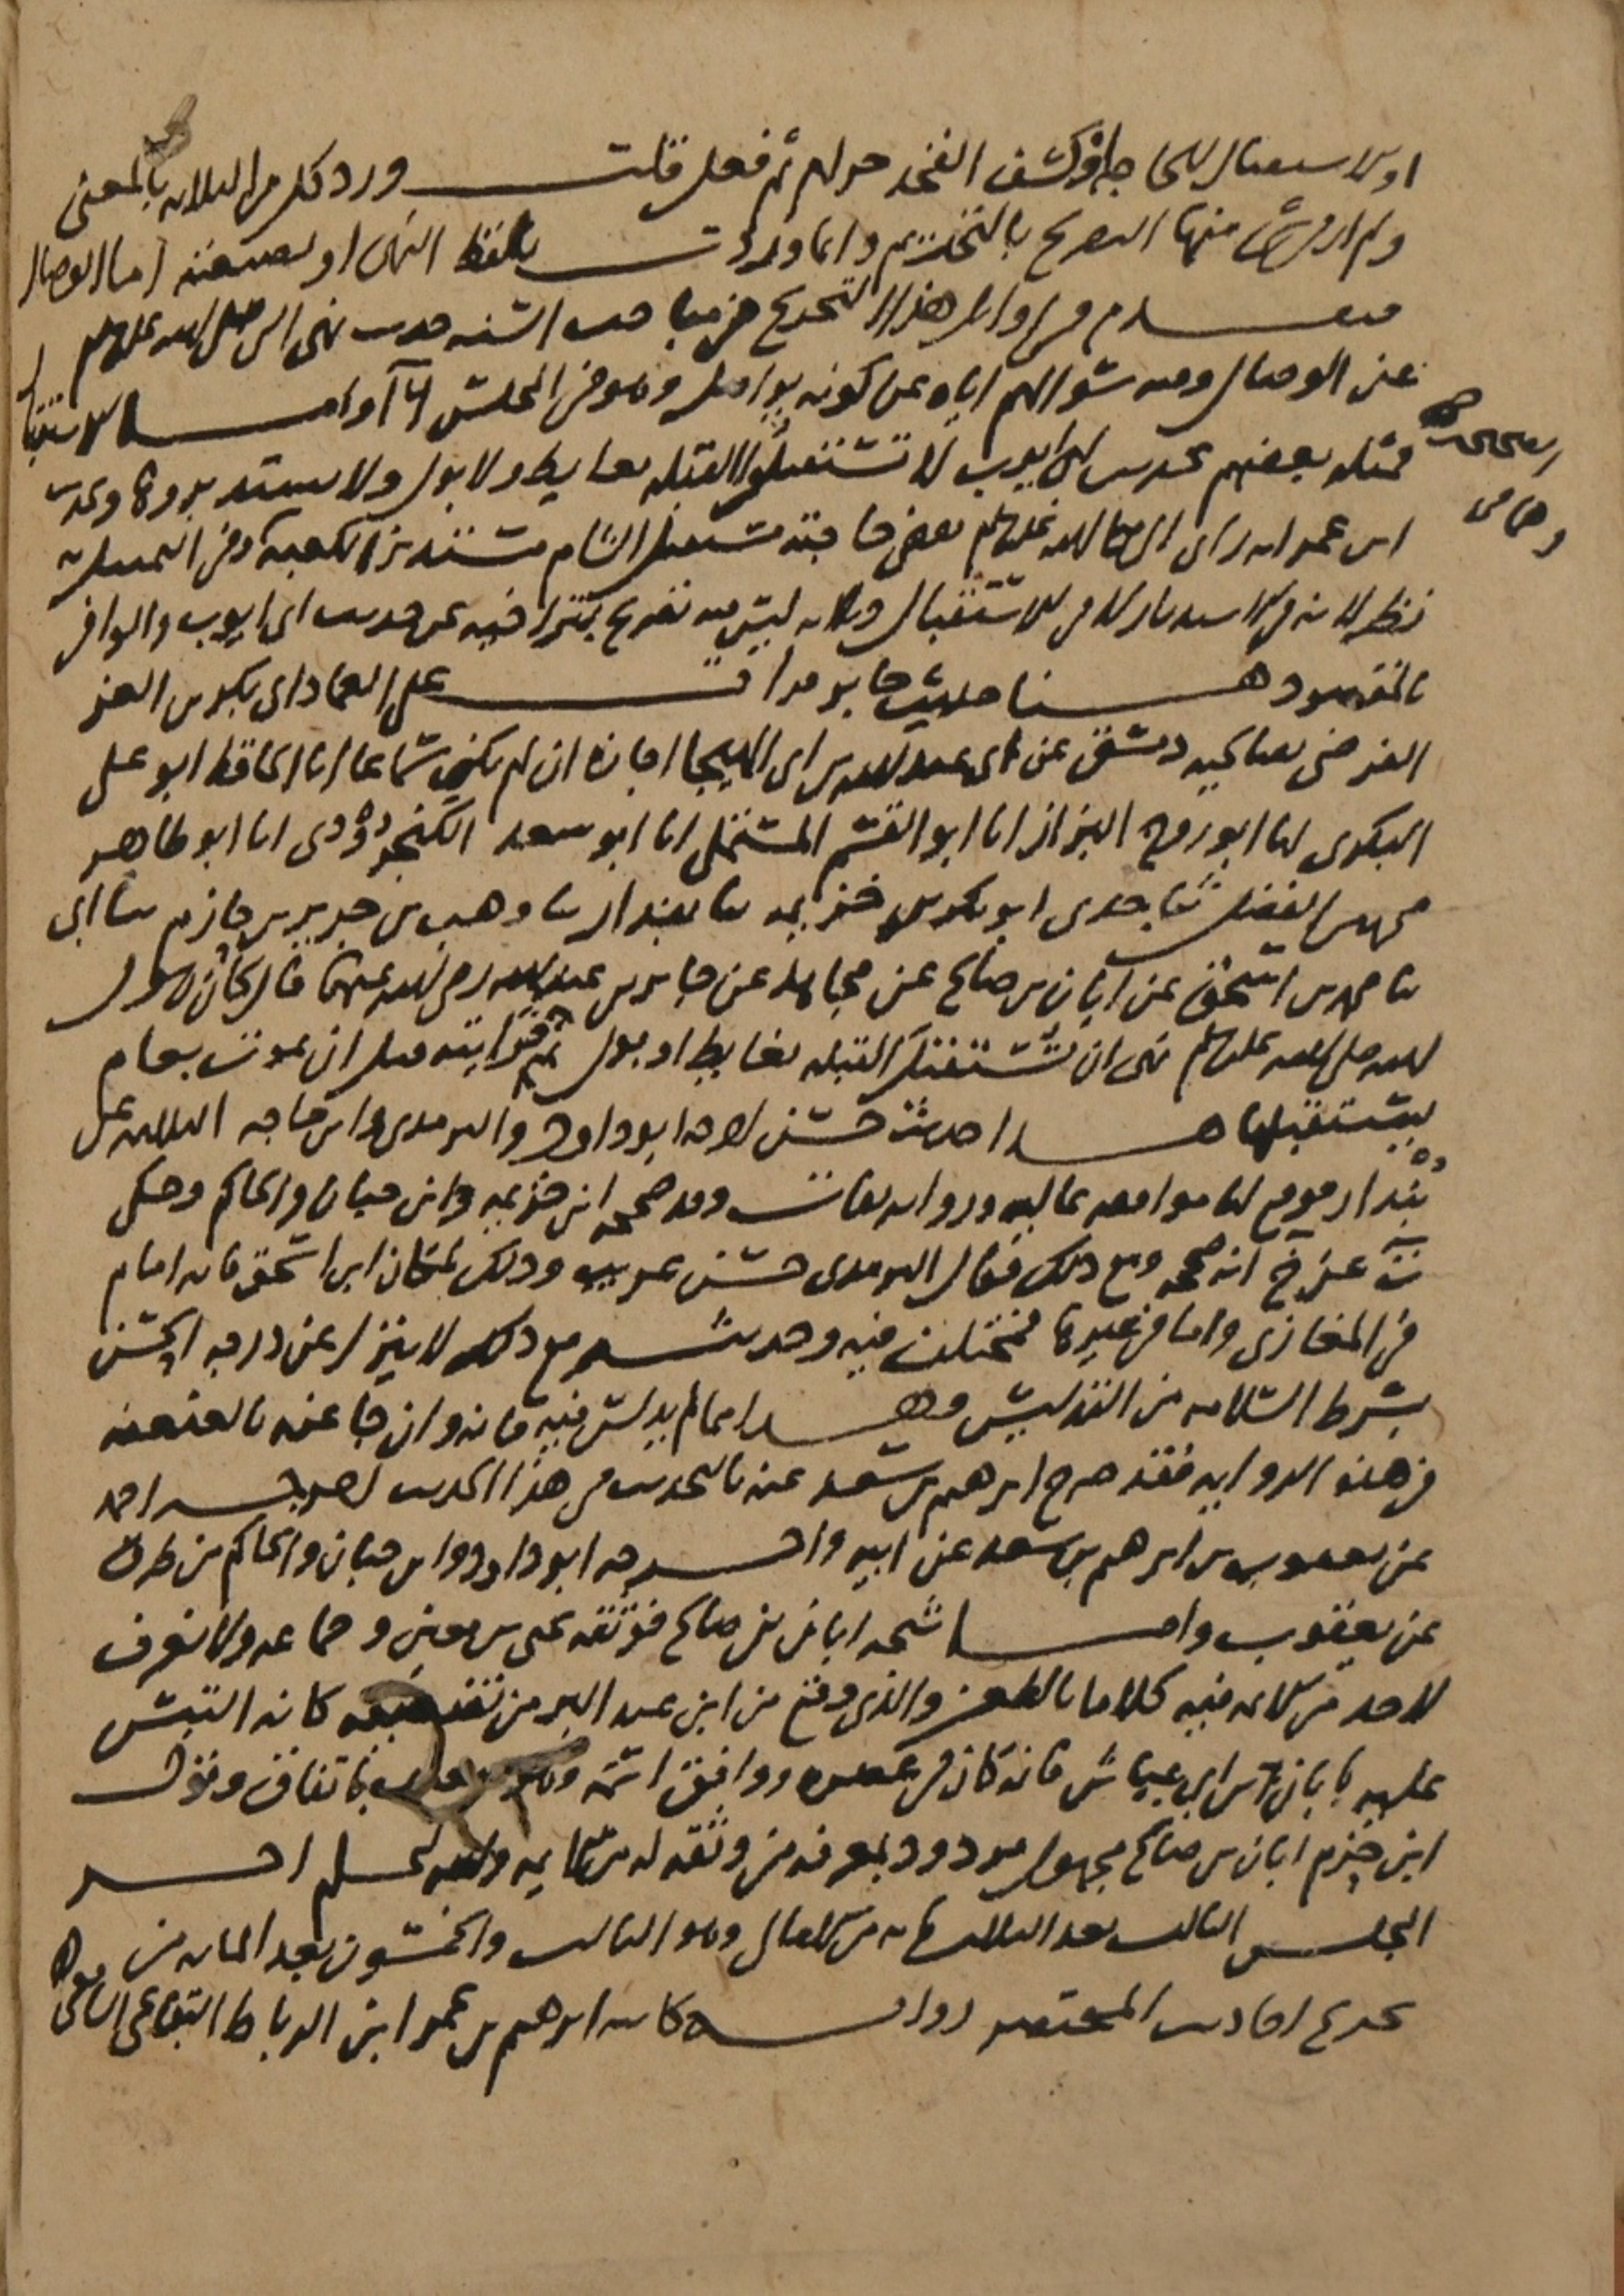 او الاستقبال للحاجة او كشف الفخد حرام ثم فعل قلت ورد كل من الثلاثة بالمعنى
ولم ار في شى منها التصريح بالتحريم وانما وردت بلفظ النهى او بصيغته اما الوصال
فتقدم في اوائل هذا التخريج في مباحث السنه حديث نهى النبي صلى الله عليه وسلم
عن الوصال وفيه سؤالهم اياه عن كونه يواصل وهو في المجلس واما الاستقبال
فمثله بعضهم بحديث ابى ايوب لا تستقبلوا القبله بغايط ولا بول ولا تستدبروها وبحديث
ابن عمر انه راى النبي صلى الله عليه وسلم يقضى حاجته مستقبل الشام مستدبر الكعبه وفى التمثيل به
نظر لانه في الاستدبار لا في الاستقبال ولانه ليس فيه تصريح بتراخيه عن حديث ابى ايوب والوافى
بالمقصود هنا حديث جابر قرات على العماد ابى بكر بن العز
الفرضى بصالحية دمشق عن ابى عبد الله بن ابى الهيجا اجازة ان لم يكن سماعا انا الحافظ ابو على
البكرى انا ابو روح البزاز انا ابو القسم المستملى انا ابو سعد الكنجرودى انا ابو طاهر
محمد بن الفضل ثنا جدى ابو بكر بن خزيمه ثنا بندار ثنا وهب بن جرير بن حازم ثنا ابى
ثنا محمد بن اسحق عن ابان بن صالح عن مجاهد عن جابر بن عبد الله رضى الله عنهما قال كان رسول
الله صلى الله عليه وسلم نهى ان تستقبل القبله بغايط او بول ثم رايته قبل ان يموت بعام
يستقبلها هذا حديث حسن اخرجه ابو داود والترمذى وابن ماجه الثلاثه عن
بندار فوقع لنا موافقه عاليه ورواته ثقات وقد صححه ابن خزيمه وابن حبان والحاكم وحكى
ت عن خ انه صححه ومع ذلك فقال الترمذى حسن غريب وذلك لمكان ابن اسحق فانه امام
في المغازى واما في غيرها فمختلف فيه وحديثه مع ذلك لا ينزل عن درجه الحسن
بشرط السلامه من التدليس وهذا مما لم يدلس فيه فانه وان جا عنه بالعنعنه
في هذه الروايه فقد صرح ابرهيم بن سعد عنه بالتحديث في هذا الحديث اخرجه احمد
عن يعقوب بن ابرهيم بن سعد عن ابيه واخرجه ابو داود وابن حبان والحاكم من طرق
عن يعقوب واما شيخه ابان بن صالح فوثقه يحيى بن معين وجماعه ولا نعرف
لاحد من الائمه فيه كلاما بالطعن والذى وقع من ابن عبد البر من تضعيفه كانه التبس
عليه بابان بن ابى عياش فانه كان في عصره ووافق اسمه وهو ضعيف باتفاق وقول
ابن حزم ابان بن صالح مجهول مردود بمعرفه من وثقه له من الائمه والله اعلم اخر
المجلس الثالث بعد الثلثمائه من الامالى وهو الثالث والخمسون بعد المائه من
تخريج احاديث المختصر روايه كاتبه ابرهيم بن عمر ابن الرباط البقاعى الشافعى